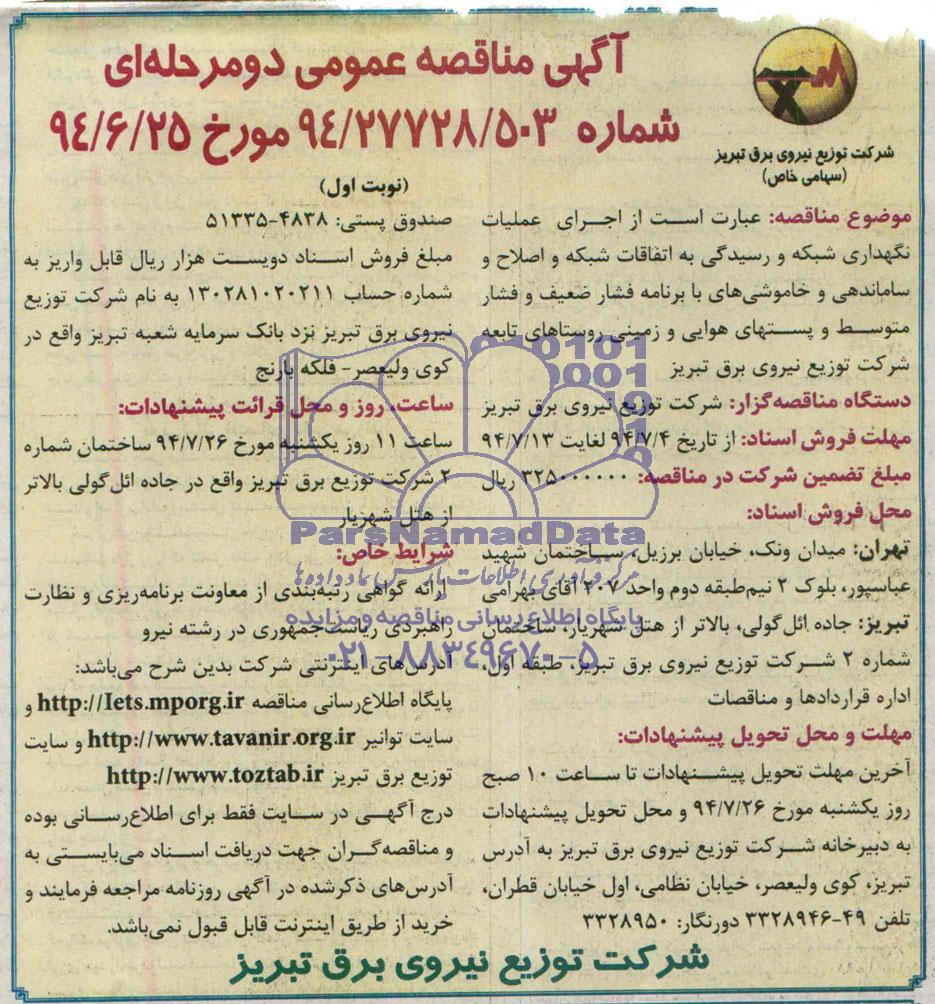 آگهی مناقصه عمومی دومرحله‌ای
شماره ۹۴/۲۷۷۲۸/۵۰۳ مورخ ۹۴/۶/۲۵
شرکت توزیع نیروی برق تبریز
(سهامی خاص)
(نوبت اول)
موضوع مناقصه: عبارت است از اجرای عملیات
نگهداری شبکه و رسیدگی به اتفاقات شبکه و اصلاح و
ساماندهی و خاموشی‌های با برنامه فشار ضعیف و فشار
متوسط و پستهای هوایی و زمینی روستاهای تابعه
شرکت توزیع نیروی برق تبریز
دستگاه مناقصه‌گزار: شرکت توزیع نیروی برق تبریز
مهلت فروش اسناد: از تاریخ ۹۴/۷/۴ لغایت ۹۴/۷/۱۳
مبلغ تضمین شرکت در مناقصه: ۳۲۵۰۰۰۰۰۰ ریال
محل فروش اسناد:
تهران: میدان ونک، خیابان برزیل، ساختمان شهید
عباسپور، بلوک ۲ نیم‌طبقه دوم واحد ۲۰۷ آقای بهرامی
تبریز: جاده ائل‌گولی، بالاتر از هتل شهریار، ساختمان
شماره ۲ شرکت توزیع نیروی برق تبریز، طبقه اول،
اداره قراردادها و مناقصات
مهلت و محل تحویل پیشنهادات:
آخرین مهلت تحویل پیشنهادات تا ساعت ۱۰ صبح
روز یکشنبه مورخ ۹۴/۷/۲۶ و محل تحویل پیشنهادات
به دبیرخانه شرکت توزیع نیروی برق تبریز به آدرس
تبریز، کوی ولیعصر، خیابان نظامی، اول خیابان قطران،
تلفن ۴۹-۳۳۲۸۹۴۶ دورنگار: ۳۳۲۸۹۵۰
صندوق پستی: ۴۸۳۸-۵۱۳۳۵
مبلغ فروش اسناد دویست هزار ریال قابل واریز به
شماره حساب ۱۳۰۲۸۱۰۲۰۲۱۱ به نام شرکت توزیع
نیروی برق تبریز نزد بانک سرمایه شعبه تبریز واقع در
کوی ولیعصر- فلکه بارنج
ساعت، روز و محل قرائت پیشنهادات:
ساعت ۱۱ روز یکشنبه مورخ ۹۴/۷/۲۶ ساختمان شماره
۲ شرکت توزیع برق تبریز واقع در جاده ائل‌گولی بالاتر
از هتل شهریار
شرایط خاص:
ارائه گواهی رتبه‌بندی از معاونت برنامه‌ریزی و نظارت
راهبردی ریاست‌جمهوری در رشته نیرو
آدرس‌های اینترنتی شرکت بدین شرح می‌باشد:
پایگاه اطلاع‌رسانی مناقصه http://Iets.mporg.ir و
سایت توانیر http://www.tavanir.org.ir و سایت
توزیع برق تبریز http://www.toztab.ir
درج آگهی در سایت فقط برای اطلاع‌رسانی بوده
و مناقصه‌گران جهت دریافت اسناد می‌بایستی به
آدرس‌های ذکرشده در آگهی روزنامه مراجعه فرمایند و
خرید از طریق اینترنت قابل قبول نمی‌باشد.
شرکت توزیع نیروی برق تبریز
ParsNamadData
مرکز فرآوری اطلاعات پارس نماد داده‌ها
پایگاه اطلاع رسانی مناقصه و مزایده
۰۲۱-۸۸۳۴۹۶۷۰-۵